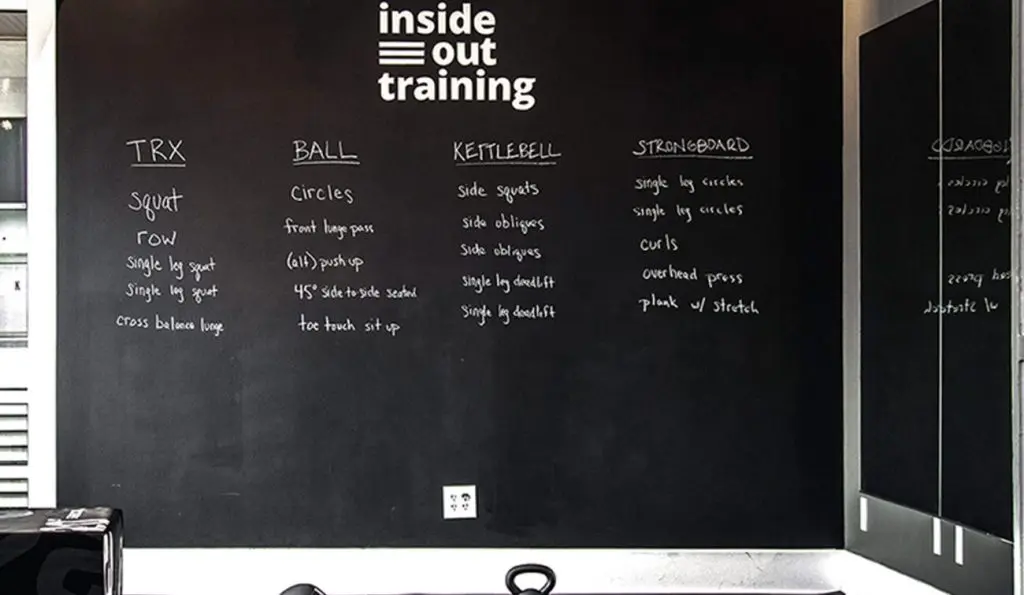 inside
out
training
TRX
squat
row
single leg squat
single leg squat
cross balance lunge
BALL
circles
front lunge pass
(alt) push up
45° side to side seated
toe touch sit up
KETTLEBELL
side squats
side obliques
side obliques
single leg deadlift
single leg deadlift
STRONGBOARD
single leg circles
single leg circles
curls
overhead press
plank w/ stretch